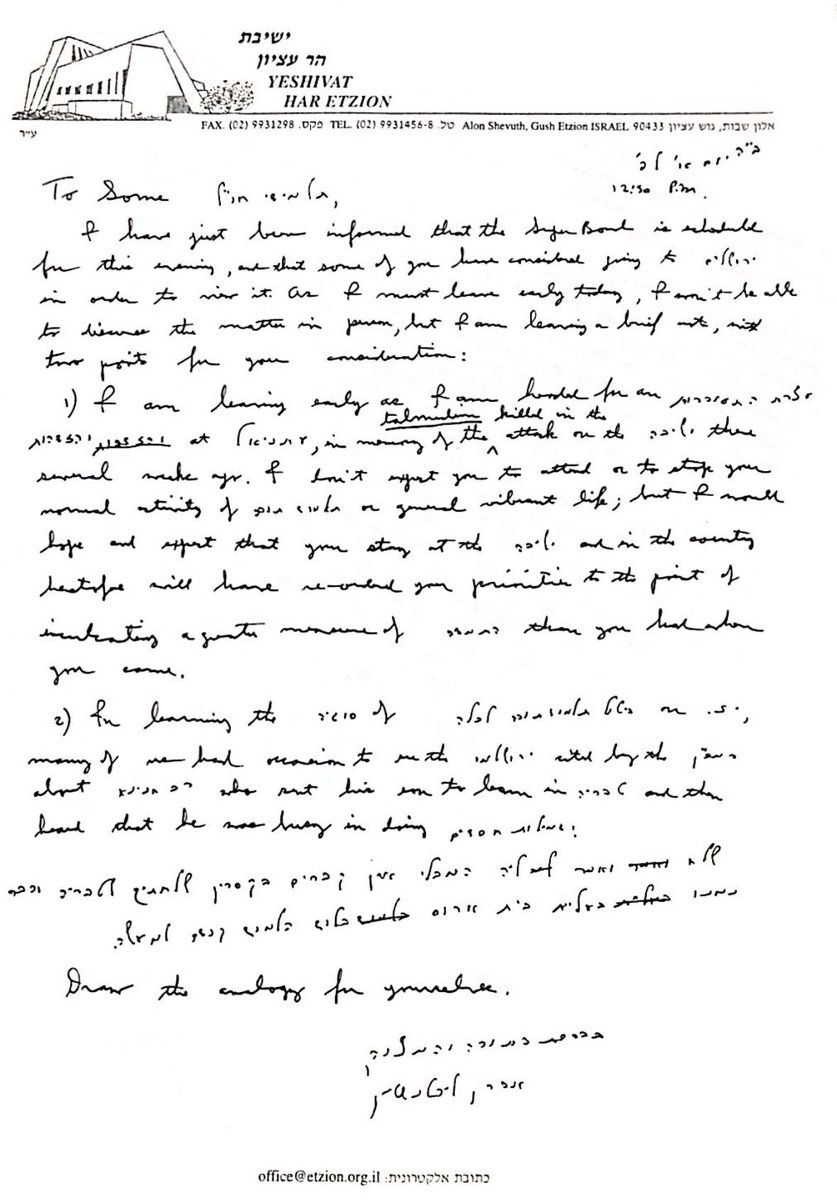 ישיבת
הר עציון
YESHIVAT
HAR ETZION
ע״ר
FAX. (02) 9931298 פקס. TEL. (02) 9931456-8 טל. Alon Shevuth, Gush Etzion ISRAEL 90433 אלון שבות, גוש עציון
ב"ה יום א'
12:30 P.M.
To Some תלמידי חו"ל,
I have just been informed that the Super Bowl is scheduled
for this evening, and that some of you have considered going to ירושלים
in order to view it. As I must leave early today, I won't be able
to discuss the matter in person, but I am leaving a brief note, with
two points for your consideration:
1) I am leaving early as I am headed for an עצרת התעוררות
והזדהות at עתניאל, in memory of the talmidim killed in the attack on the ישיבה there
several weeks ago. I don't expect you to attend or to stop your
normal activity of תלמוד תורה or general vibrant life; but I would
hope and expect that your stay at the ישיבה and in the country
heretofore will have re-ordered your priorities to the point of
inculcating a greater measure of than you had when
you came.
2) In learning the סוגיה of ביטול תלמוד תורה on
many of us had occasion to see the ירושלמי cited by the הר"ן
about who sent his son to learn in טבריה and then
heard that he was busy in doing גמילות חסדים:
שלח ואמר ליה המבלי אין קברים בקסרין שלחתיך לטבריה וכבר
נמנו בעלית בית ארוס בלוד הלמוד קודם למעשה.
Draw the analogy for yourselves.
בברכת התורה והמצוה
אהרן ליכטנשטיין
office@etzion.org.il :כתובת אלקטרונית